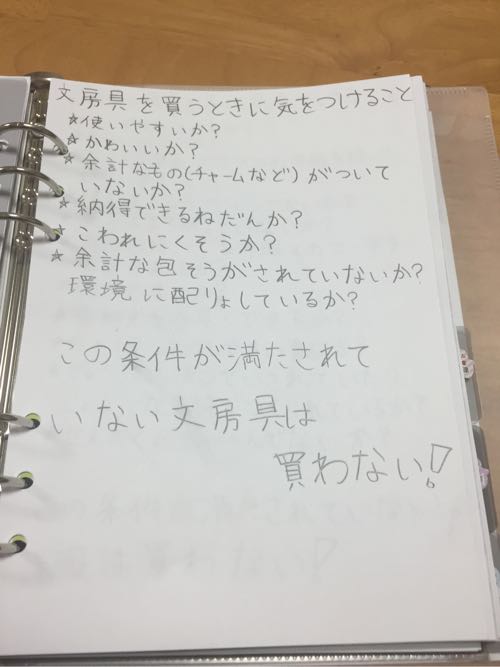 文房具を買うときに気をつけること
☆使いやすいか?
☆かわいいか?
☆余計なもの(チャームなど)がついて
いないか?
☆納得できるねだんか?
☆こわれにくそうか?
☆余計な包そうがされていないか?
環境に配りょしているか?
この条件が満たされて
いない文房具は
買わない!